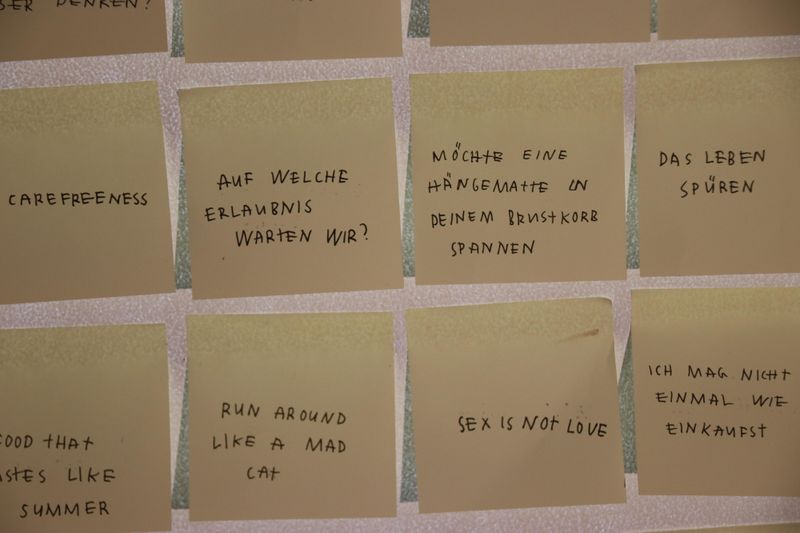 DENKEN?
CAREFREENESS
AUF WELCHE
ERLAUBNIS
WARTEN WIR?
MÖCHTE EINE
HÄNGEMATTE IN
DEINEM BRUSTKORB
SPANNEN
DAS LEBEN
SPÜREN
THAT
LIKE
SUMMER
RUN AROUND
LIKE A MAD
CAT
SEX IS NOT LOVE
ICH MAG NICHT
EINMAL WIE
EINKAUFST